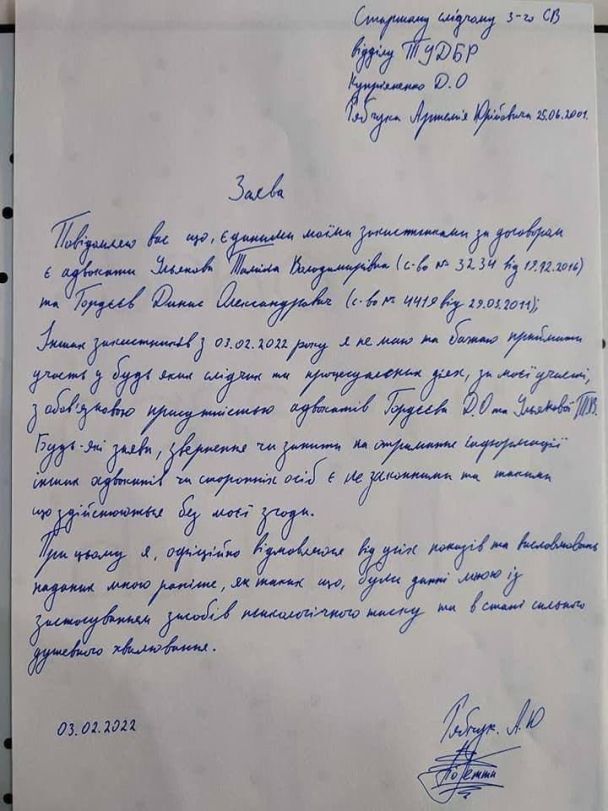 Старшому слідчому 3-го СВ
відділу ТУДБР
Купріяненко Д.О
Рябчука Артемія Юрійовича 25.06.2001.
Заява
Повідомляю вас що, єдиними моїми захистниками за договорам
є адвокати Ульякова Таміла Володимирівна (с-во № 3234 від 19.12.2016)
та Гордєєв Динис Олександравич (с-во № 4419 від 29.03.2011);
Інших захистників з 03.02.2022 року я не маю та бажаю приймати
участь у будь яких слідчих та процесуальних діях, за моєї участі,
з обов'язковою присутністью адвокатів Гордєєва Д.О та Ульякової Т.В.
Будь-які заяви, звернення чи запити на отримання інформації
інших адвокатів чи сторонніх осіб є не законними та такими
що здійснюються без моєї згоди.
При цьому я, офіційно відмовляюся від усіх показів та висловлювань
наданих мною раніше, як таких що, були данні мною із
застосуванням засобів психологічного тиску та в стані сильного
душевного хвилювання.
03.02.2022
Рябчук. А.Ю